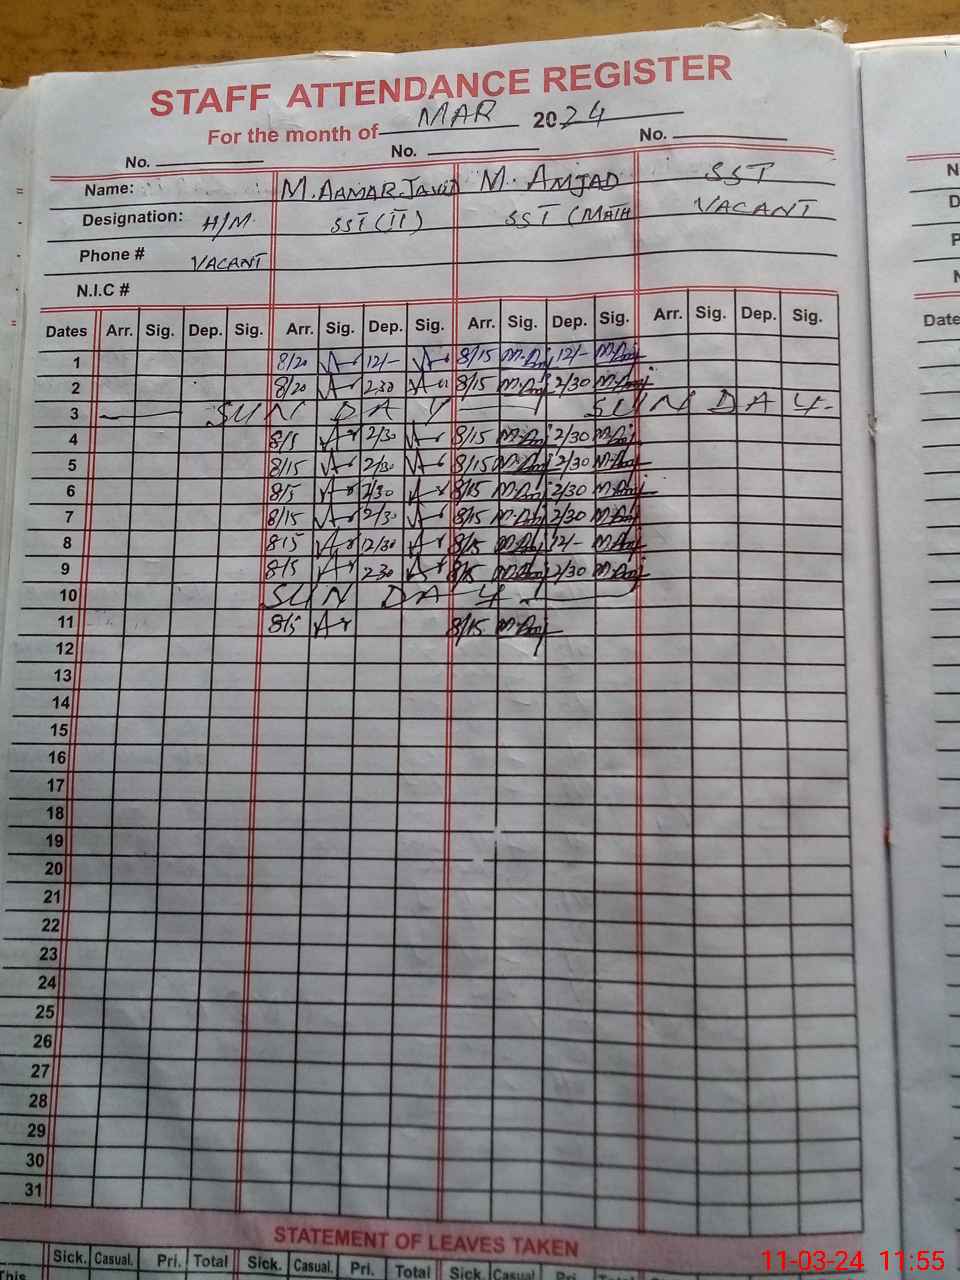 STAFF ATTENDANCE REGISTER
For the month of MAR 2024
No. No. No.
Name: M. AAMAR JAVID M. AMJAD SST
Designation: H/M SST (IT) SST (MATH VACANT
Phone # VACANT
N.I.C #
Dates Arr. Sig. Dep. Sig. Arr. Sig. Dep. Sig. Arr. Sig. Dep. Sig. Arr. Sig. Dep. Sig.
1 8/20 12/- 8/15 12/-
2 8/20 2.30 8/15 2/30
3 SUN DAY SUN DAY
4 8/5 2/30 8/15 2/30
5 8/15 2/30 8/15 2/30
6 8/5 2/30 8/15 2/30
7 8/15 2/30 8/15 2/30
8 8/5 12/30 8/15 12/-
9 8/5 2.30 8/15 2/30
10 SUN DAY
11 8/5 8/15
12
13
14
15
16
17
18
19
20
21
22
23
24
25
26
27
28
29
30
31
STATEMENT OF LEAVES TAKEN
Sick. Casual. Pri. Total Sick. Casual. Pri. Total Sick. Casual. Pri. Total
This
N
D
P
N
Date
11-03-24 11:55